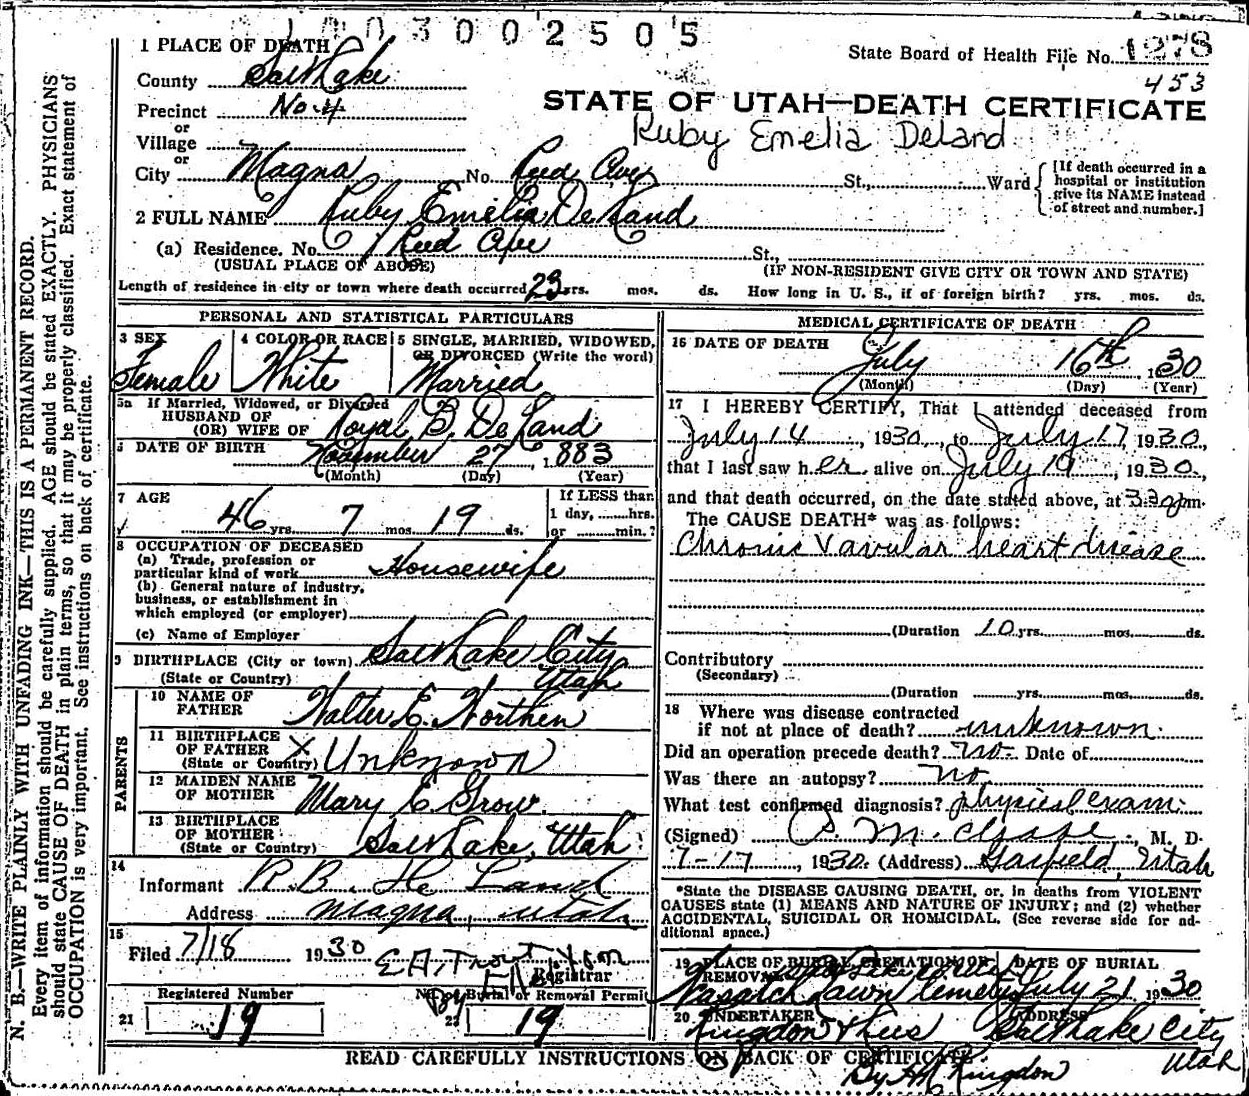 1003002505
State Board of Health File No. 1278
453
1 PLACE OF DEATH
County Salt Lake
Precinct No. 4
or
Village
or
City Magna No. Reed Ave St., Ward
[If death occurred in a hospital or institution give its NAME instead of street and number.]
STATE OF UTAH—DEATH CERTIFICATE
Ruby Emelia Deland
2 FULL NAME Ruby Emelia DeLand
(a) Residence. No. 7 Reed Ave St.,
(USUAL PLACE OF ABODE) (IF NON-RESIDENT GIVE CITY OR TOWN AND STATE)
Length of residence in city or town where death occurred 23 yrs. mos. ds. How long in U. S., if of foreign birth? yrs. mos. ds.
PERSONAL AND STATISTICAL PARTICULARS
3 SEX
Female
4 COLOR OR RACE
White
5 SINGLE, MARRIED, WIDOWED, OR DIVORCED (Write the word)
Married
5a If Married, Widowed, or Divorced
HUSBAND OF
(OR) WIFE OF Royal B. DeLand
6 DATE OF BIRTH November 27, 1883
(Month) (Day) (Year)
7 AGE
46 yrs. 7 mos. 19 ds.
If LESS than
1 day, ........hrs.
or ........min.?
8 OCCUPATION OF DECEASED
(a) Trade, profession or
particular kind of work Housewife
(b) General nature of industry,
business, or establishment in
which employed (or employer)
(c) Name of Employer
9 BIRTHPLACE (City or town) Salt Lake City
(State or Country) Utah
PARENTS
10 NAME OF
FATHER Walter E. Northen
11 BIRTHPLACE
OF FATHER X Unknown
(State or Country)
12 MAIDEN NAME
OF MOTHER Mary E. Grow.
13 BIRTHPLACE
OF MOTHER Salt Lake, Utah
(State or Country)
14
Informant R. B. De Land
Address Magna, Utah
15
Filed 7/18 1930 E A, Trout
Registrar
Registered Number
21 19
No. Burial or Removal Permit
22 19
MEDICAL CERTIFICATE OF DEATH
16 DATE OF DEATH
July 16th, 1930
(Month) (Day) (Year)
17 I HEREBY CERTIFY, That I attended deceased from
July 14, 1930, to July 17, 1930,
that I last saw her alive on July 1, 1930,
and that death occurred, on the date stated above, at 3:30 pm.
The CAUSE DEATH* was as follows:
Chronic Vavular heart disease
(Duration 10 yrs. mos. ds.
Contributory
(Secondary)
(Duration yrs. mos. ds.
18 Where was disease contracted
if not at place of death? unknown.
Did an operation precede death? no. Date of
Was there an autopsy? no
What test confirmed diagnosis? physical exam.
(Signed) M. Chase, M. D.
7-17, 1930. (Address) Garfield, Utah
*State the DISEASE CAUSING DEATH, or, in deaths from VIOLENT
CAUSES state (1) MEANS AND NATURE OF INJURY; and (2) whether
ACCIDENTAL, SUICIDAL OR HOMICIDAL. (See reverse side for ad-
ditional space.)
19 PLACE OF BURIAL, CREMATION OR
REMOVAL Salt Lake City
Wasatch Lawn Cemetery
DATE OF BURIAL
July 21 1930
20 UNDERTAKER
ADDRESS
Salt Lake City
Utah
By Kingdon
READ CAREFULLY INSTRUCTIONS ON BACK OF CERTIFICATE.
N. B.—WRITE PLAINLY WITH UNFADING INK—THIS IS A PERMANENT RECORD.
Every item of information should be carefully supplied. AGE should be stated EXACTLY. PHYSICIANS
should state CAUSE OF DEATH in plain terms, so that it may be properly classified. Exact statement of
OCCUPATION is very important. See instructions on back of certificate.